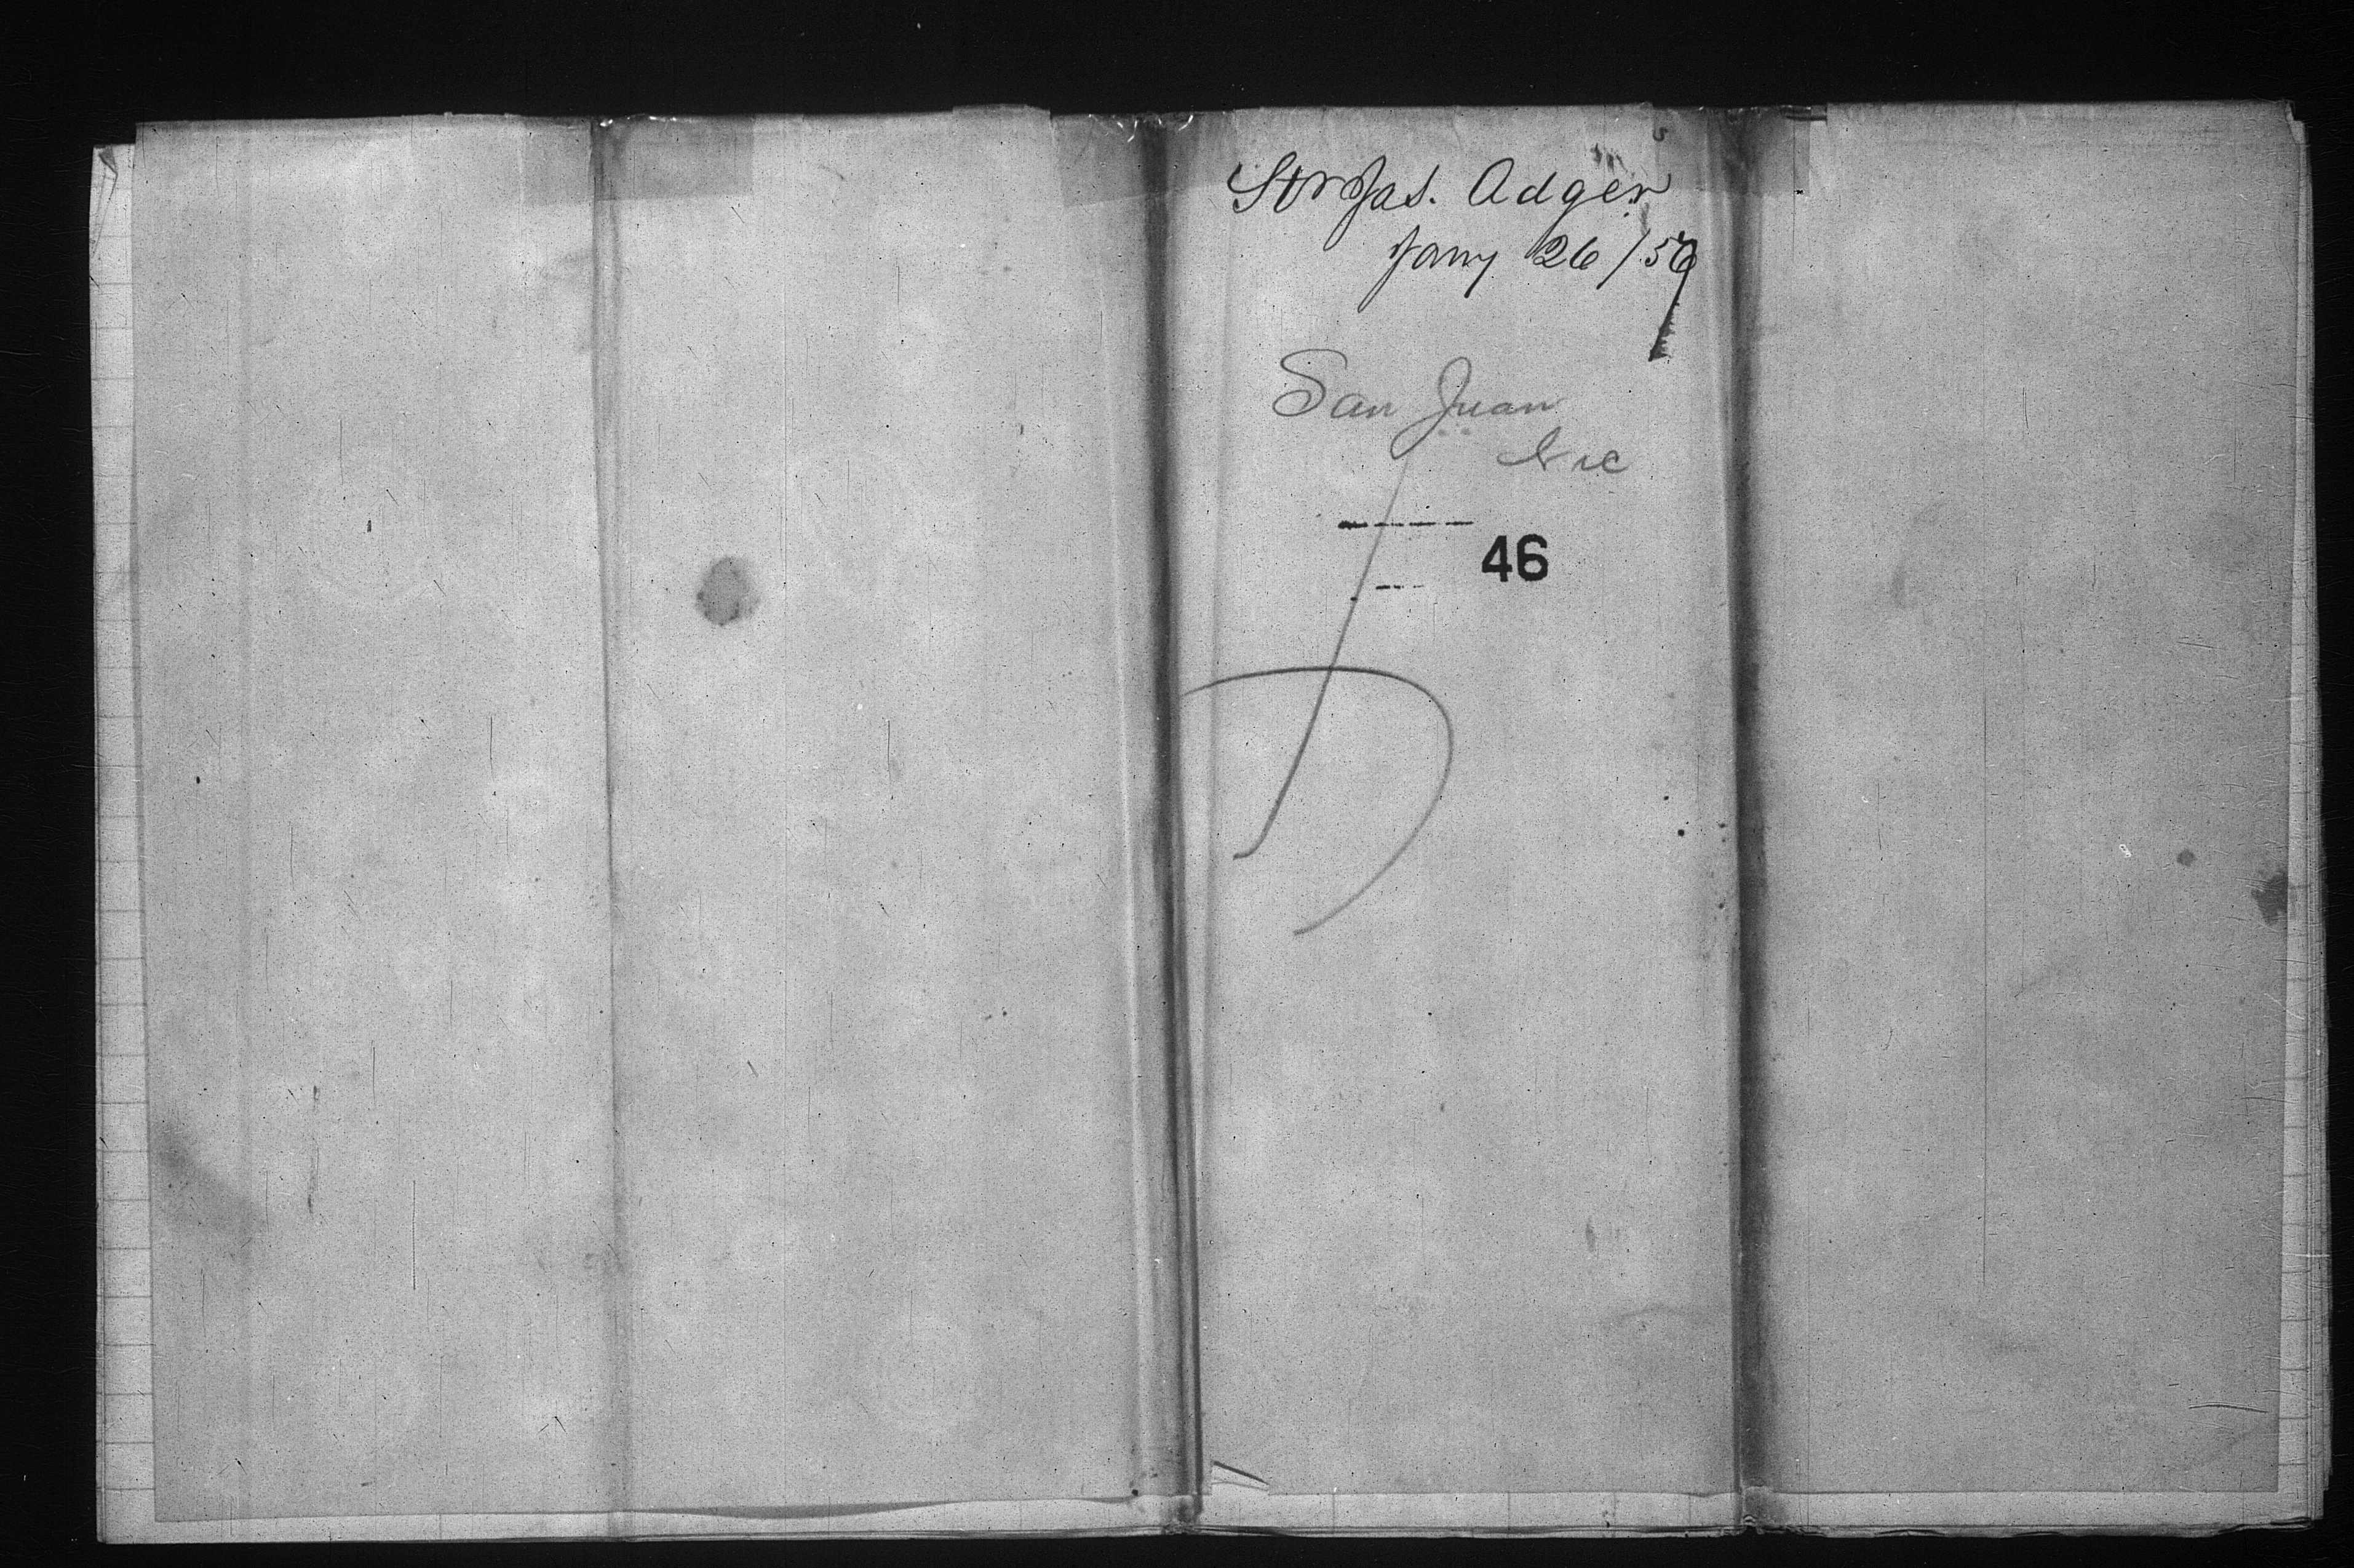 Str Jas. Adger
Jany 26 / 59
San Juan
Nic
46
D